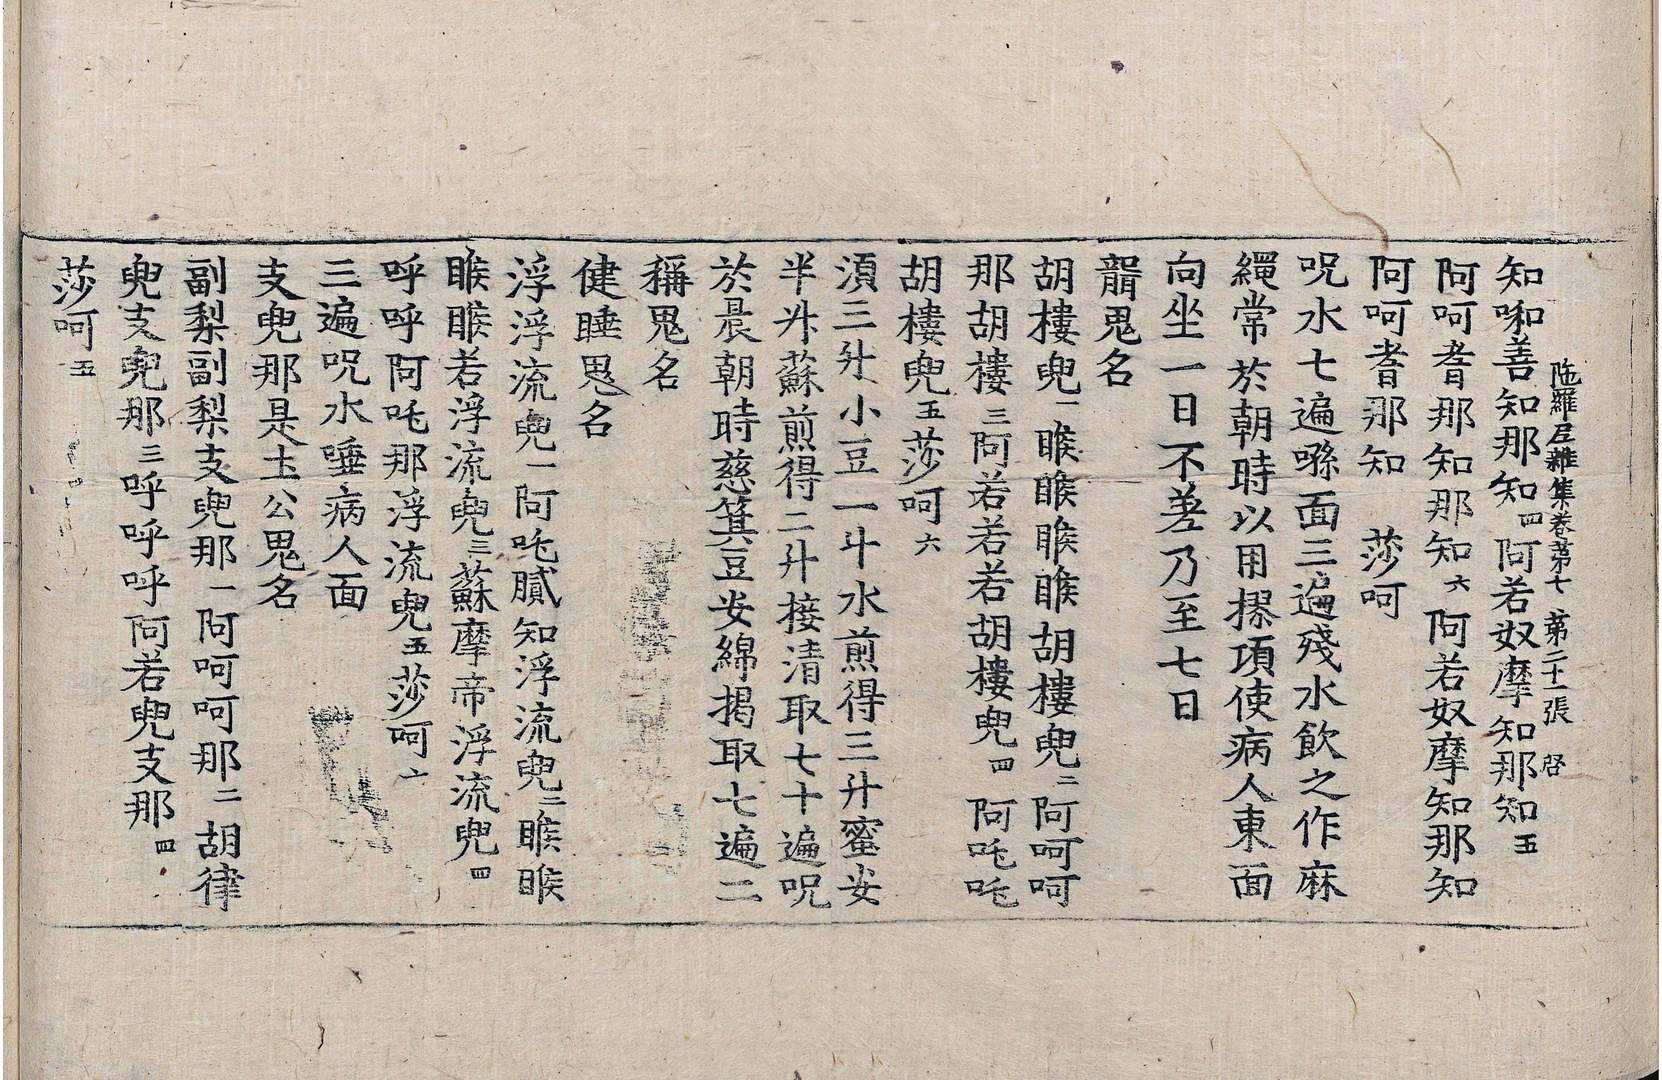 陁羅尼雜集卷第七 第二十一張 啓
知㖿善知那知四阿若奴摩知那知五
阿呵耆那知那知六阿若奴摩知那知
阿呵耆那知 莎呵
呪水七遍㗚面三遍殘水飲之作麻
繩常於朝時以用搽項使病人東面
向坐一日不差乃至七日
髯鬼名
胡樓兜一睺睺睺睺胡樓兜二阿呵呵
那胡樓三阿若若若胡樓兜四阿吒吒
胡樓兜五莎呵六
湏三升小豆一斗水煎得三升蜜安
半升蘇煎得二升接清取七十遍呪
於晨朝時慈箕豆安綿揭取七遍二
稱鬼名
健睡鬼名
浮浮流兜一阿吒膩知浮流兜二睺睺
睺睺若浮流兜三蘇摩帝浮流兜四
呼呼阿吒那浮流兜五莎呵六
三遍呪水唾病人面
支兜那是土公鬼名
副梨副梨支兜那一阿呵呵那二胡律
兜支兜那三呼呼呼阿若兜支那四
莎呵五